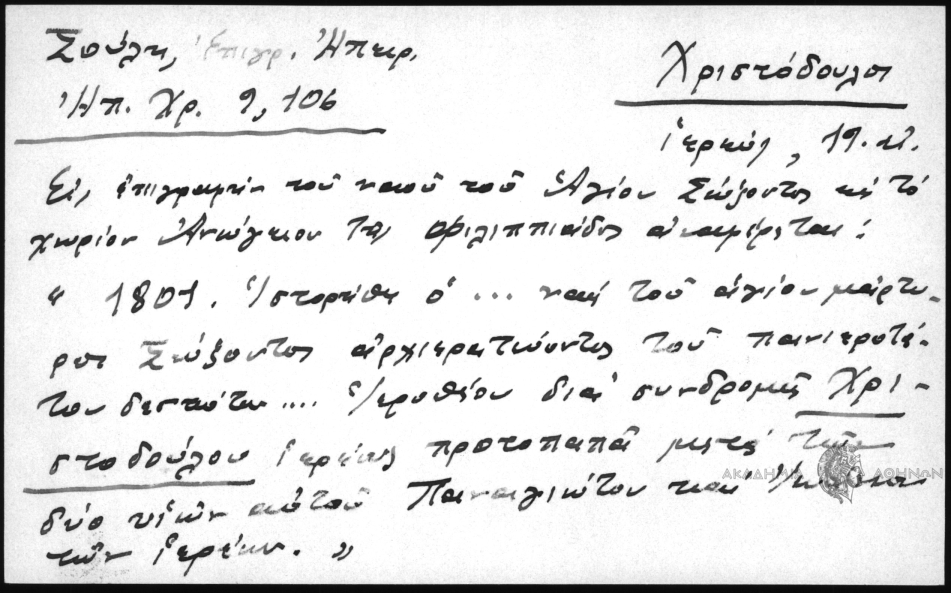 Σούλη, Ἐπιγρ. Ἠπείρ.
Ἠπ. Χρ. 9, 106
Χριστόδουλος
ἱερεύς, 19. αἰ.
Εἰς ἐπιγραφὴν τοῦ ναοῦ τοῦ Ἁγίου Σώζοντος εἰς τὸ
χωρίον Ἀνώγειον τῆς Φιλιππιάδος ἀναφέρεται:
" 1801. Ἱστορήθη ὁ ... ναὸς τοῦ ἁγίου μάρτυ-
ρος Σώζοντος ἀρχιερατεύοντος τοῦ πανιεροτά-
του δεσπότου .... Ἱεροθέου διὰ συνδρομῆς Χρι-
στοδούλου ἱερέως προτοπαπᾶ μετὰ τῶν
δύο υἱῶν αὐτοῦ Παναγιώτου καὶ
τῶν ἱερέων. "
ΑΚΑΔΗΜΙΑ ΑΘΗΝΩΝ